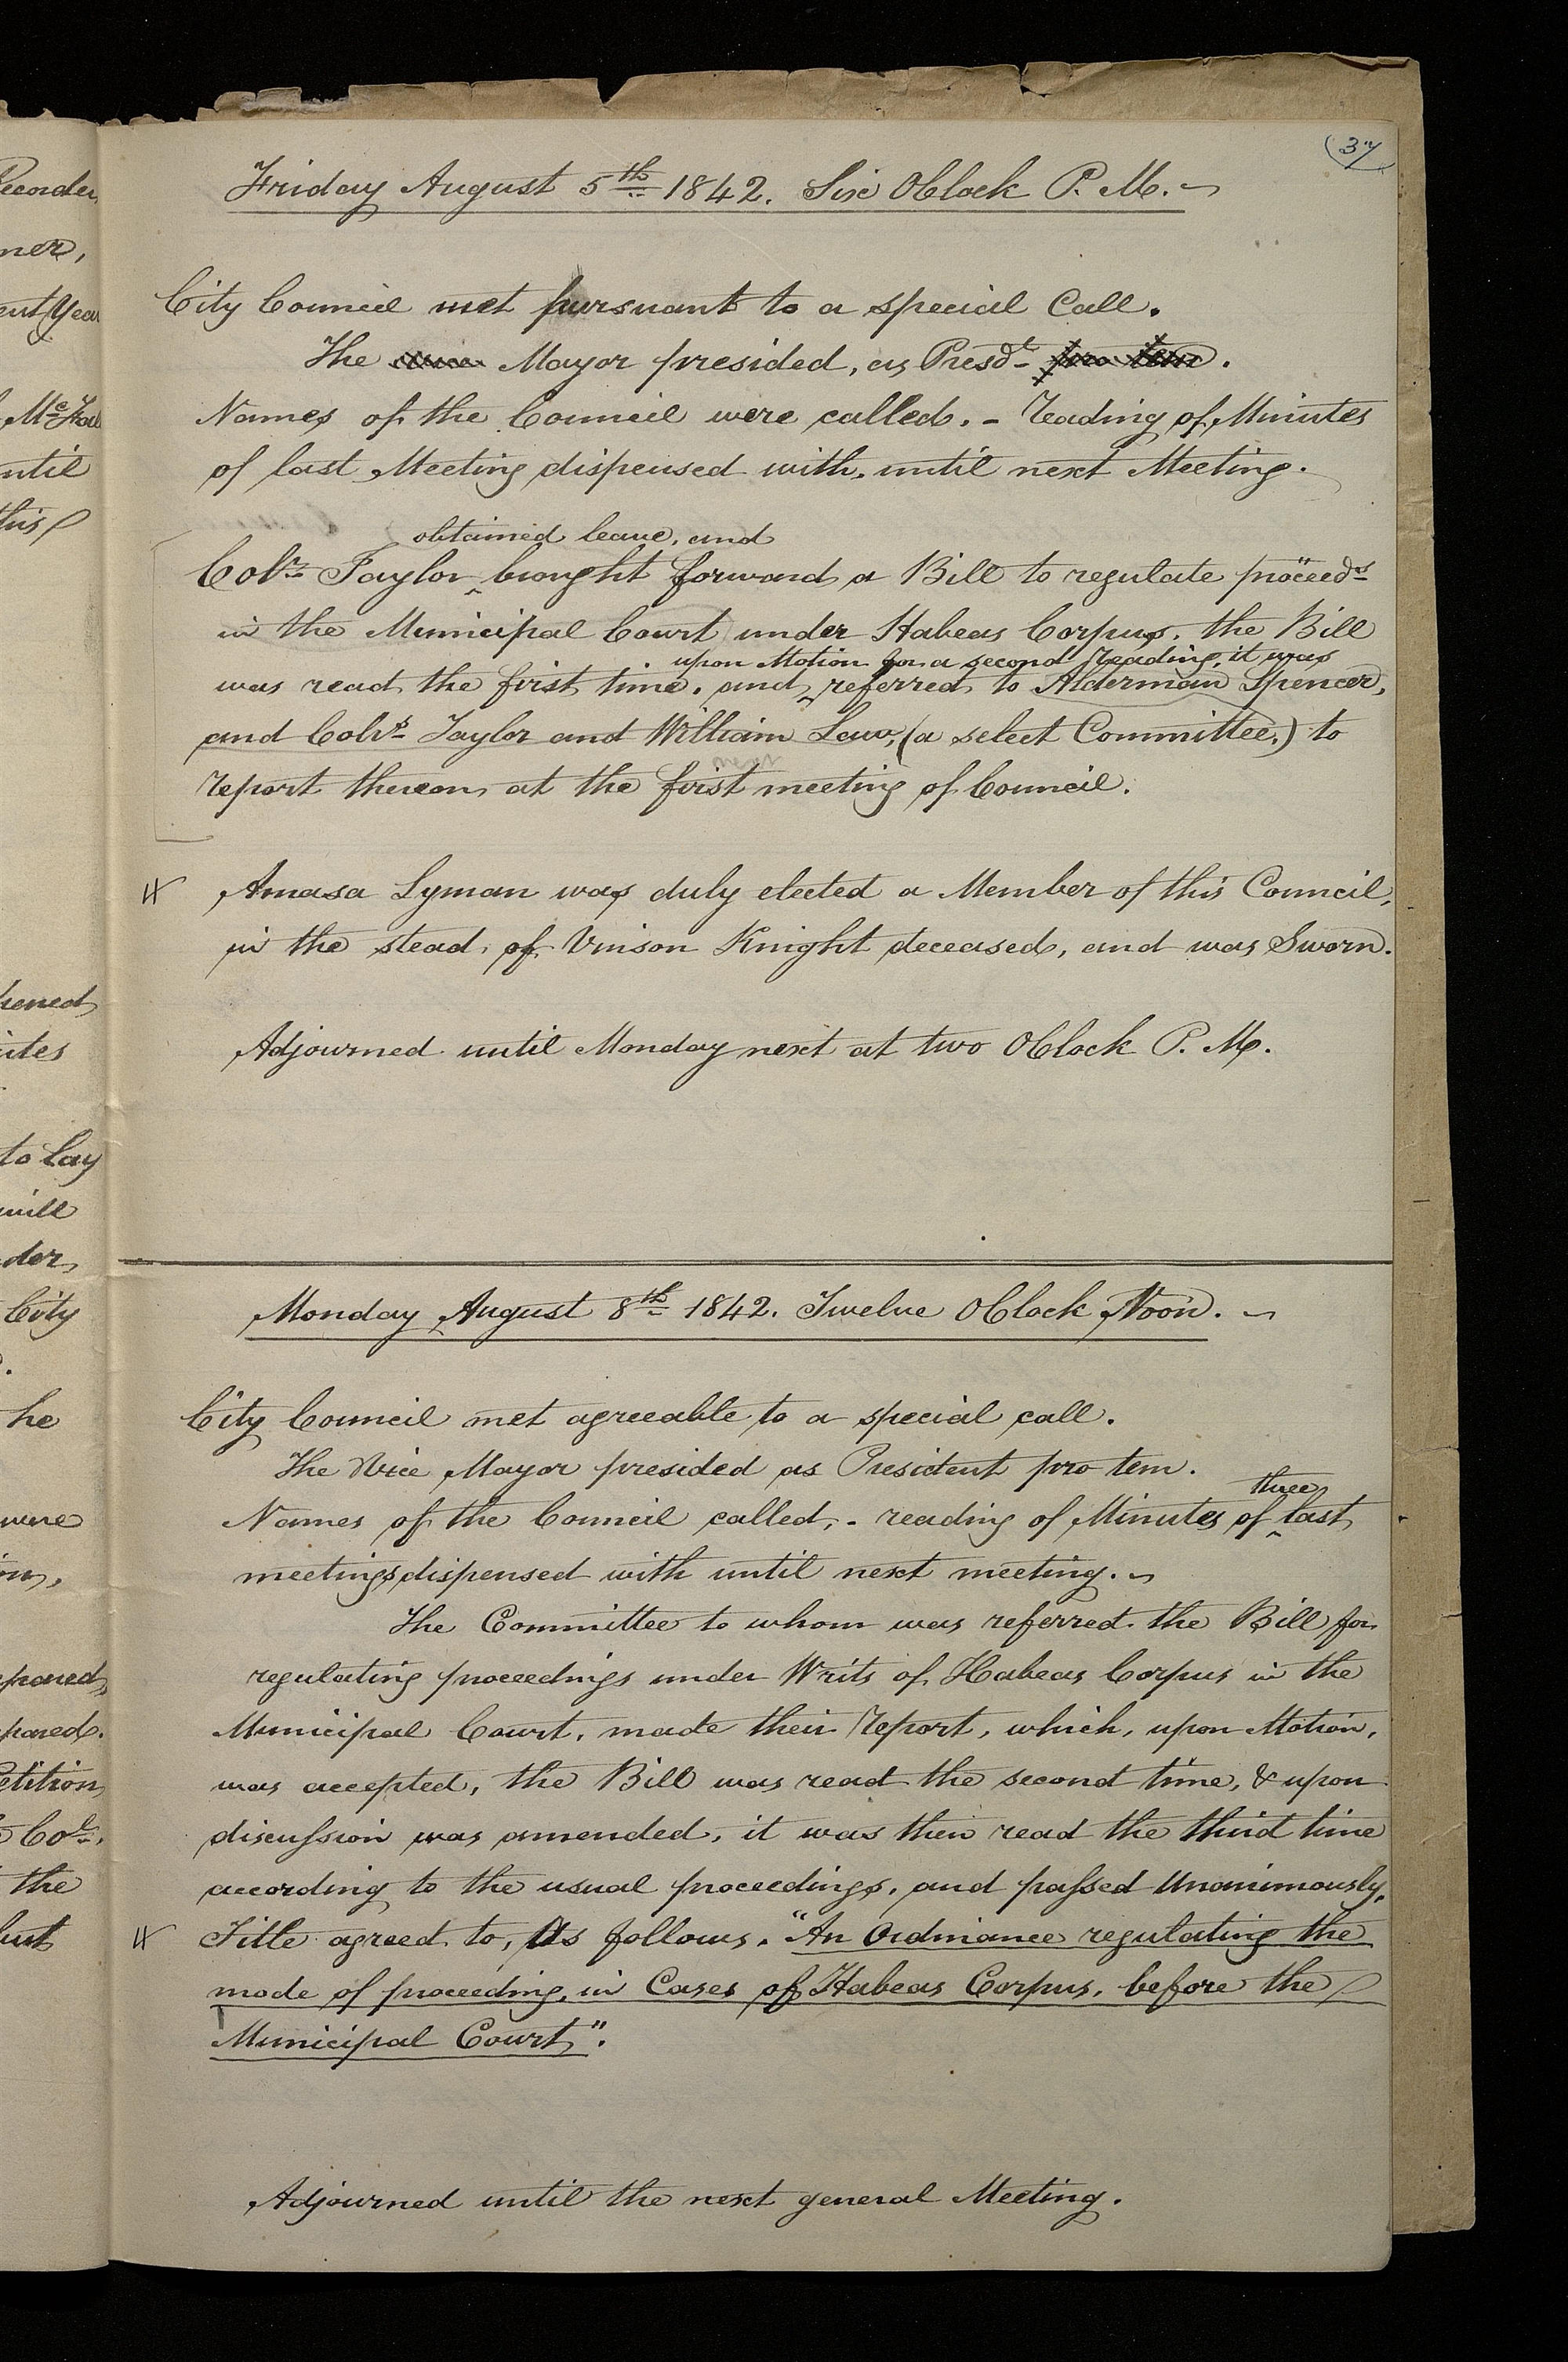 (37
Friday August 5th 1842. Six OClock P. M. ~
City Council met pursuant to a special Call.
The vice Mayor presided, as Presdt pro tem.
Names of the Council were called. - reading of Minutes
of last Meeting dispensed with, until next Meeting.
obtained leave, and
Colr Taylor ‸ brought forward a Bill to regulate proceedgs
in the Municipal Court under Habeas Corpus. the Bill
upon Motion for a second reading, it was
was read the first time. and ‸ referred to Alderman Spencer,
and Colrs Taylor and William Law, (a select Committee.) to
report thereon at the first meeting of Council.
Amasa Lyman was duly elected a Member of this Council,
in the stead of Vinson Knight deceased, and was Sworn.
Adjourned until Monday next at two OClock P. M.
Monday August 8th 1842. Twelve OClock Noon. ~
City Council met agreeable to a special call.
The Vice Mayor presided as President pro tem.
three
Names of the Council called, - reading of Minutes of ‸ last
meetings dispensed with until next meeting. ~
The Committee to whom was referred the Bill for
regulating proceedings under Writs of Habeas Corpus in the
Municipal Court, made their report, which, upon Motion,
was accepted, the Bill was read the second time, & upon
discussion was amended, it was then read the third time
according to the usual proceedings. and passed Unanimously.
Title agreed to, As follows. "An Ordinance regulating the
mode of proceeding in Cases of Habeas Corpus, before the
Municipal Court".
Adjourned until the next general Meeting.